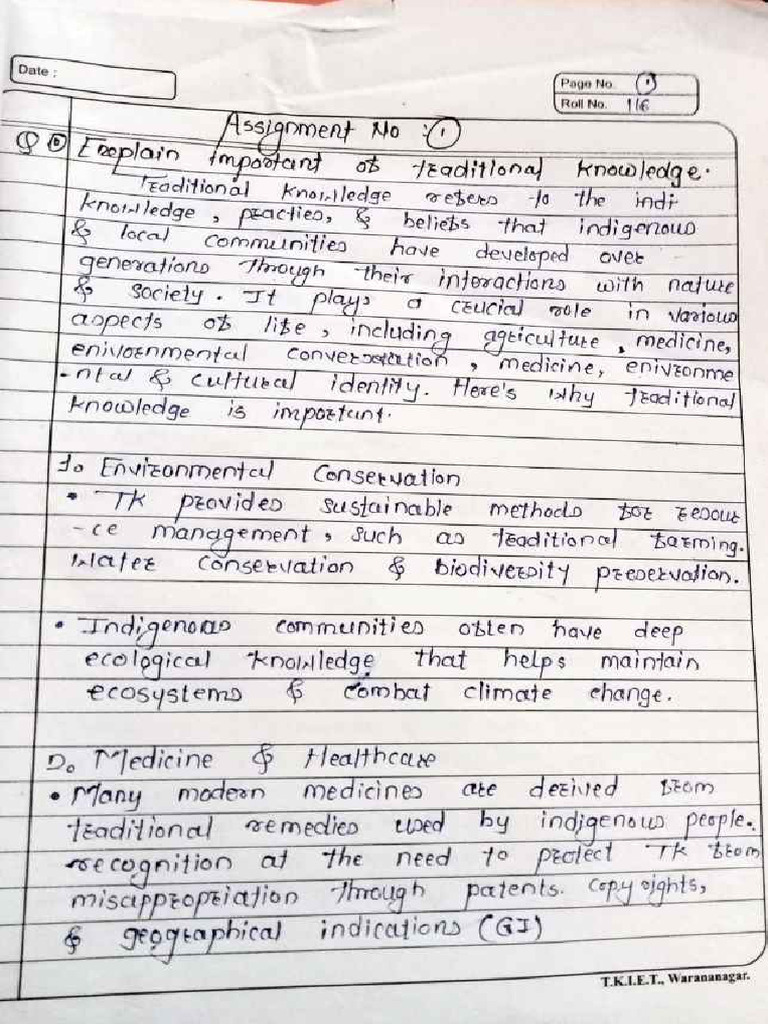 Date :
Page No. 1
Roll No. 116
Assignment No :- 1
Q 1 Exeplain important of traditional knowledge.
Traditional knowledge refers to the indi-
knowledge, practies, & beliefs that indigenous
& local communities have developed over
generations through their interactions with nature
& society. It plays a crucial role in various
aspects of life, including agriculture, medicine,
enivornmental conversatation, medicine, enivronme
-ntal & cultural identity. Here's why traditional
knowledge is important.
1. Environmental Conservation
• TK provides sustainable methods for resour
-ce management, such as traditional farming.
Water conservation & biodiversity preservation.
• Indigenous communities often have deep
ecological knowledge that helps maintain
ecosystems & combat climate change.
Medicine & Healthcare
• Many modern medicines are derived from
traditional remedies used by indigenous people.
recognition at the need to protect TK from
misappropriation through patents. copy rights,
& geographical indications (GI)
T.K.I.E.T., Warananagar.